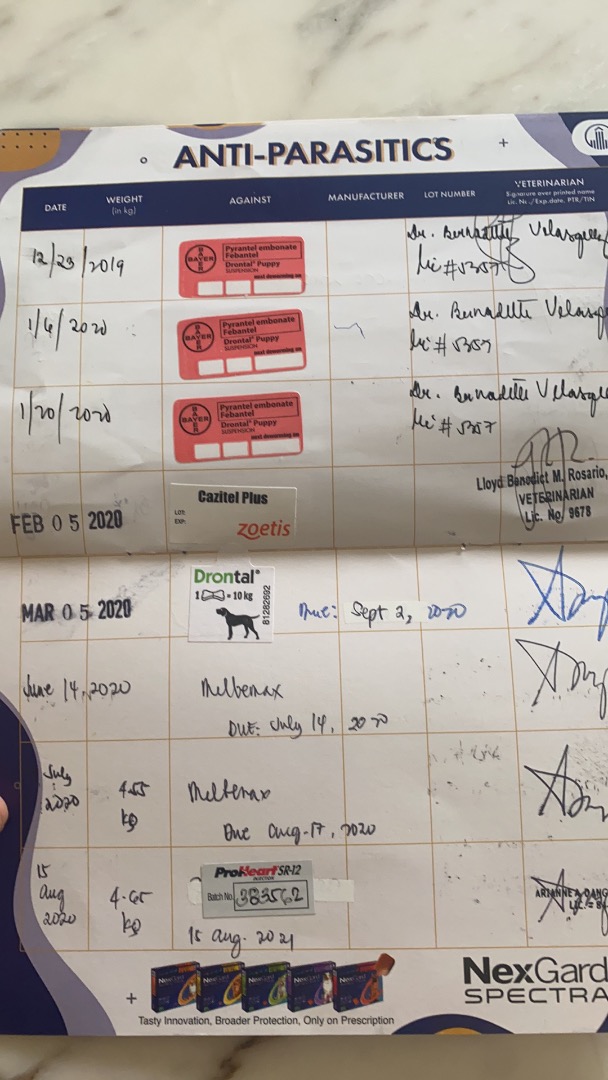 ANTI-PARASITICS
DATE WEIGHT (in kg) AGAINST MANUFACTURER LOT NUMBER VETERINARIAN
Signature over printed name
Lic. No./Exp.date, PTR/TIN
12/23/2019
BAYER
Pyrantel embonate
Febantel
Drontal® Puppy
SUSPENSION
next deworming on
Dr. Bernadette Velasquez
Lic # 5357
1/6/2020
BAYER
Pyrantel embonate
Febantel
Drontal® Puppy
SUSPENSION
next deworming on
Dr. Bernadette Velasq
Lic # 5357
1/20/2020
BAYER
Pyrantel embonate
Febantel
Drontal® Puppy
SUSPENSION
next deworming on
Dr. Bernadette Velasq
Lic # 5357
FEB 05 2020
Cazitel Plus
LOT:
EXP:
zoetis
Lloyd Benedict M. Rosario,
VETERINARIAN
Lic. No. 9678
MAR 05 2020
Drontal®
1 = 10 kg
81282692
Due: Sept 2, 2020
June 14, 2020
Milbemax
Due: July 14, 2020
July
2020
4.55
kg
Milbemax
Due Aug. 17, 2020
15
Aug
2020
4.65
kg
ProHeart SR-12
INJECTION
Batch No. 383562
15 Aug. 2021
NexGard
SPECTRA
Tasty Innovation, Broader Protection, Only on Prescription